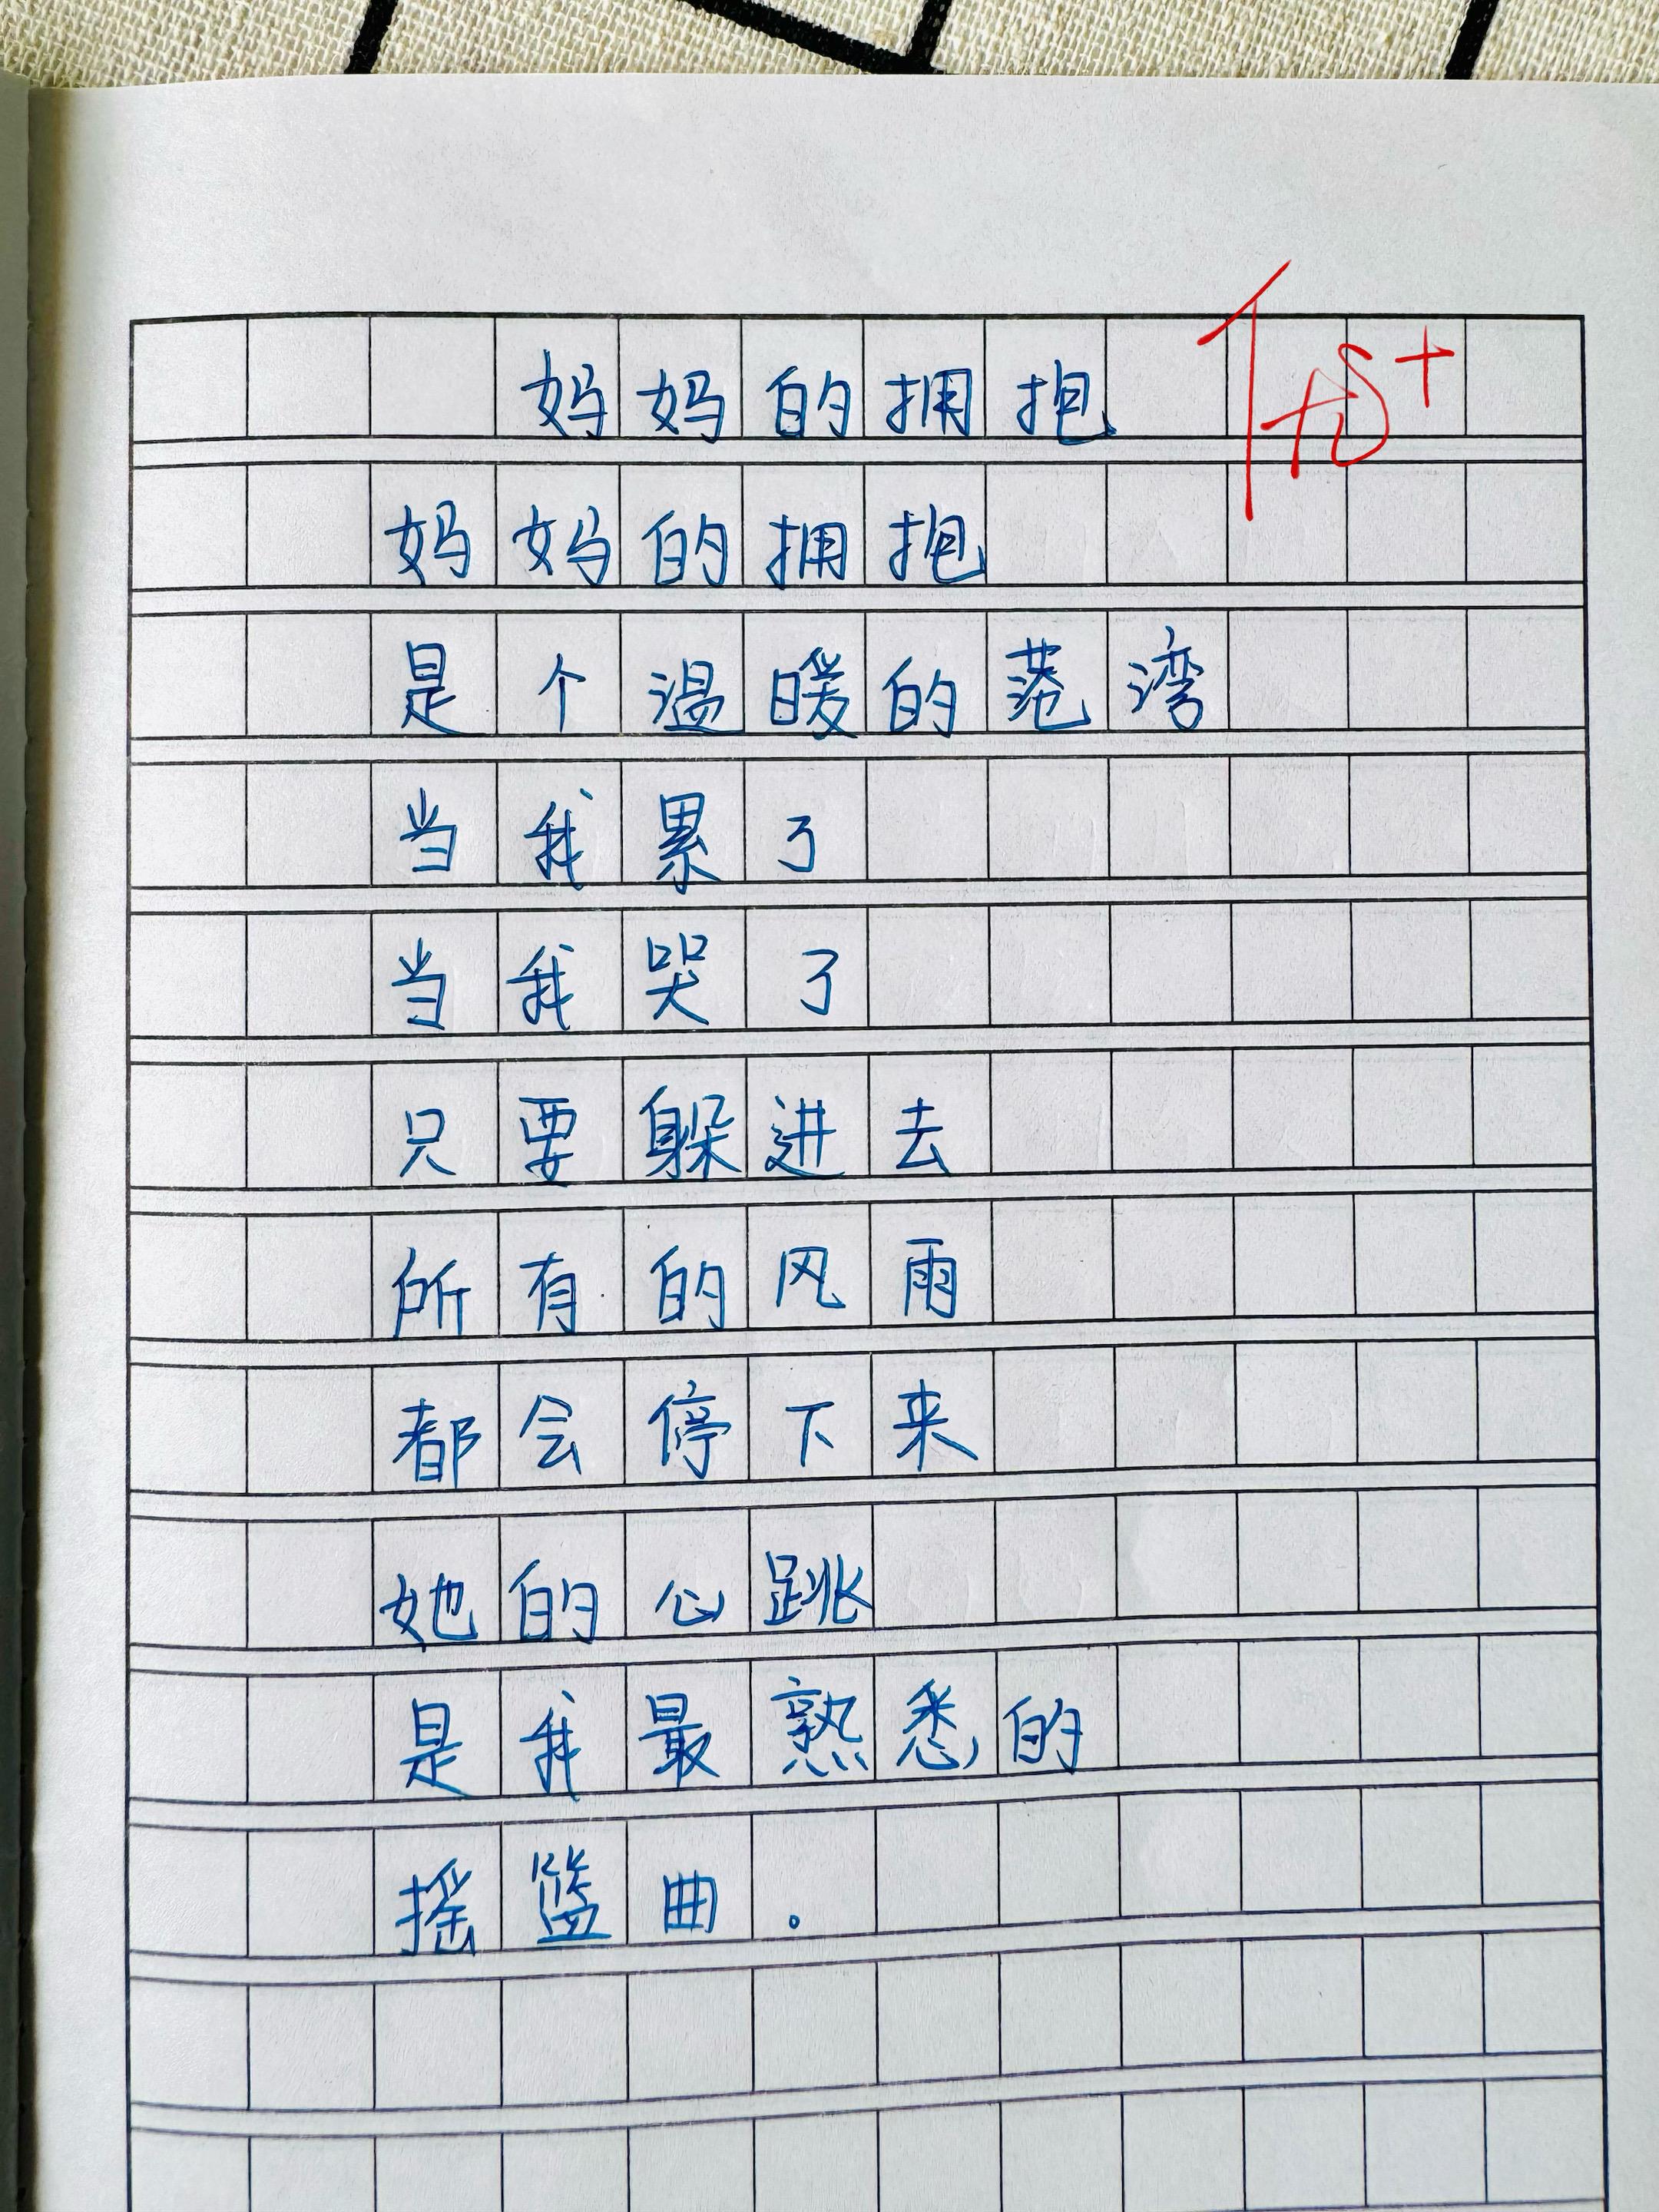 妈妈的拥抱
优+
妈妈的拥抱
是个温暖的港湾
当我累了
当我哭了
只要躲进去
所有的风雨
都会停下来
她的心跳
是我最熟悉的
摇篮曲。